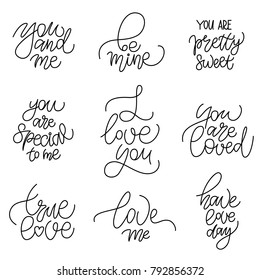 you
and
me
be
mine
YOU ARE
pretty
sweet
you
are
special
to me
I
love
you
you
are
loved
true
love
love
me
have
love
day
shutterstock.com · 792856372